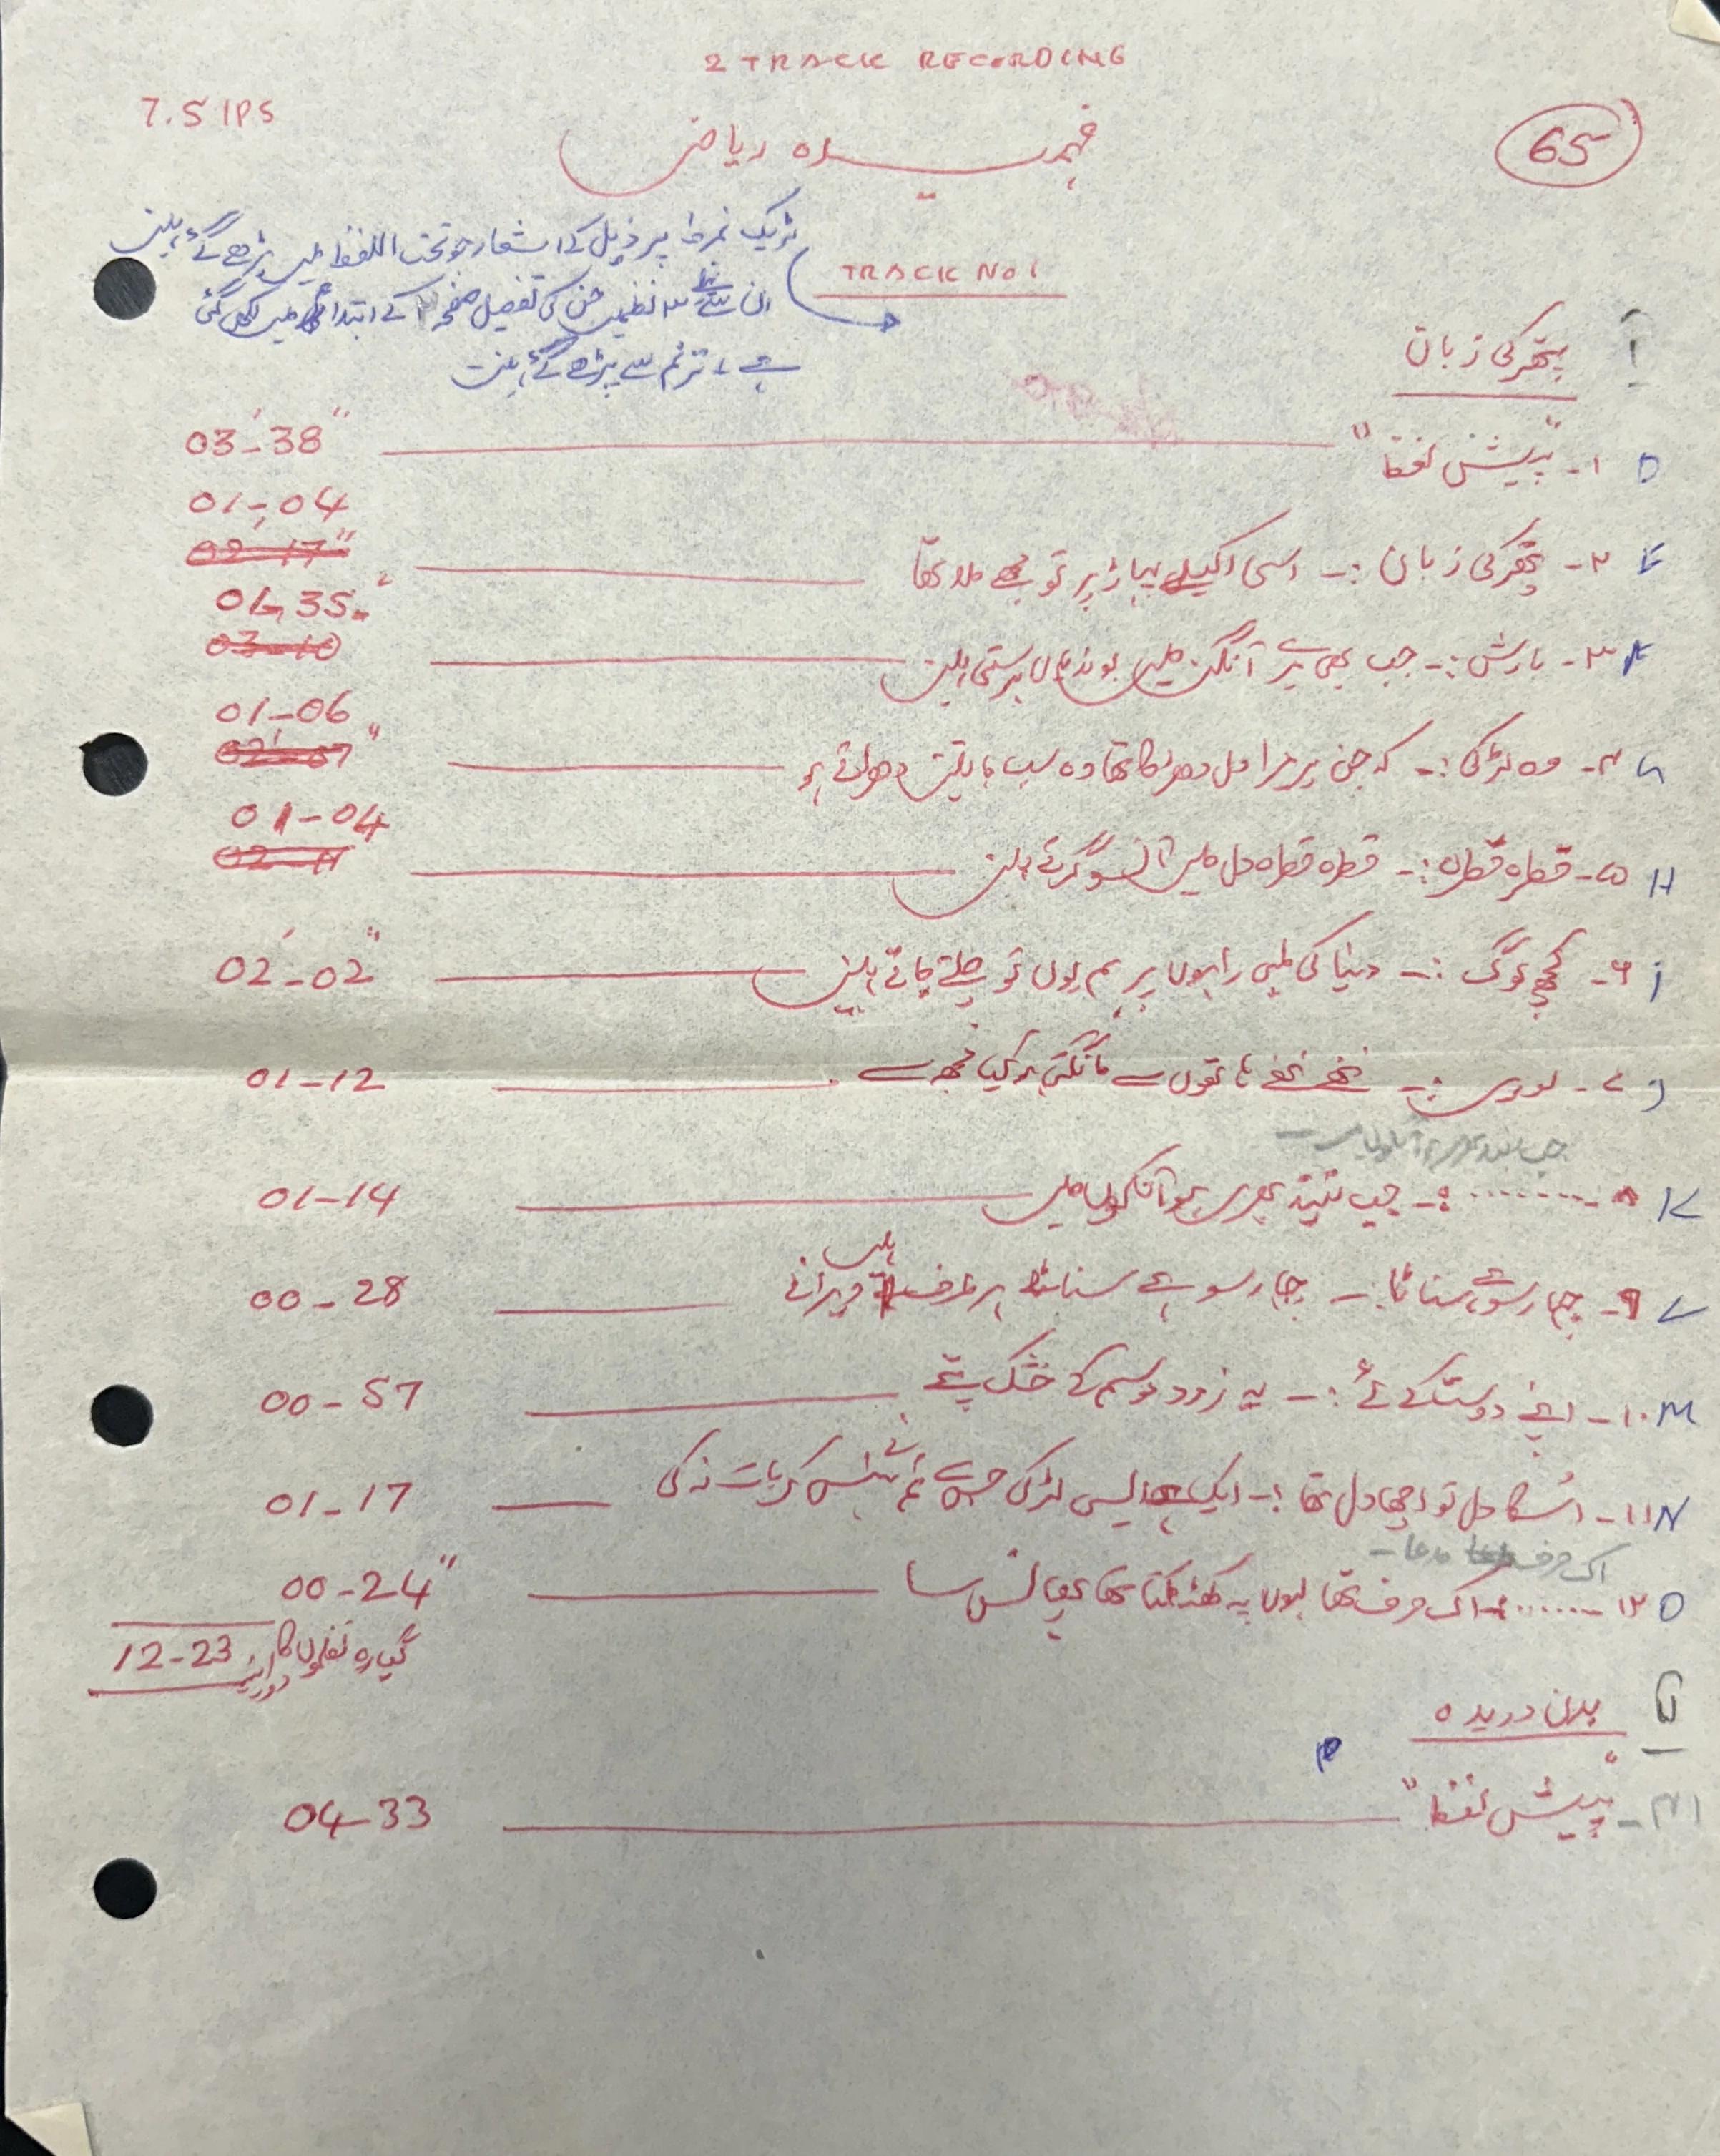 2 TRACK RECORDING
7.5 IPS
65
فہمیدہ ریاض
ٹریک نمبر ۱ پر ذیل کے اشعار جو تحت اللفظ میں پڑھے گئے ہیں
ان سے نظمیں جن کی تفصیل صفحہ کے ابتدا میں لکھی گئی
ہے، ترنم سے پڑھے گئے ہیں
TRACK NO 1
پتھر کی زبان
۱- "پیش لفظ" 03'-38"
01-04
۲- پتھر کی زبان :- اسی اکیلے پہاڑ پر تو مجھے ملا تھا 02-17"
01-35"
۳- بارش :- جب بھی میرے آنگن میں بوندیاں برستی ہیں 03-10
01-06
۴- وہ لڑکی :- کہ جن پر مرا دل دھڑکا تھا وہ سب باتیں دھراتے ہو
01-04
H ۵- قطرہ قطرہ :- قطرہ قطرہ دل میں آنسو گرتے ہیں 02-11
i ۶- کچھ لوگ :- دنیا کی لمبی راہوں پر ہم یوں تو چلتے جاتے ہیں 02'-02"
J ۷- لوری :- ننھے ننھے ہاتھوں سے مانگتی ہو کیا مجھ سے 01-12
جب نیند بھری ہو آنکھوں میں
K ۸- ........ :- جب نیند بھری ہو آنکھوں میں 01-14
L ۹- چار سو ہے سناٹا :- چار سو ہے سناٹا ہر طرف ہیں ویرانے 00-28
M ۱۰- اپنے دوست کے لئے :- یہ زرد موسم کے خشک پتے 00-57
N ۱۱- اُس کا دل تو اچھا دل تھا :- ایک ہے ایسی لڑکی جس سے تم نے ہنس کر بات نہ کی 01-17
اک حرف مدعا -
O ۱۲- ...... :- اک حرف تھا لبوں پہ کھٹکتا تھا پھانس سا 00-24"
گیارہ نظموں کا دورانیہ 12-23
بدن دریدہ
P
"پیش لفظ" 04-33